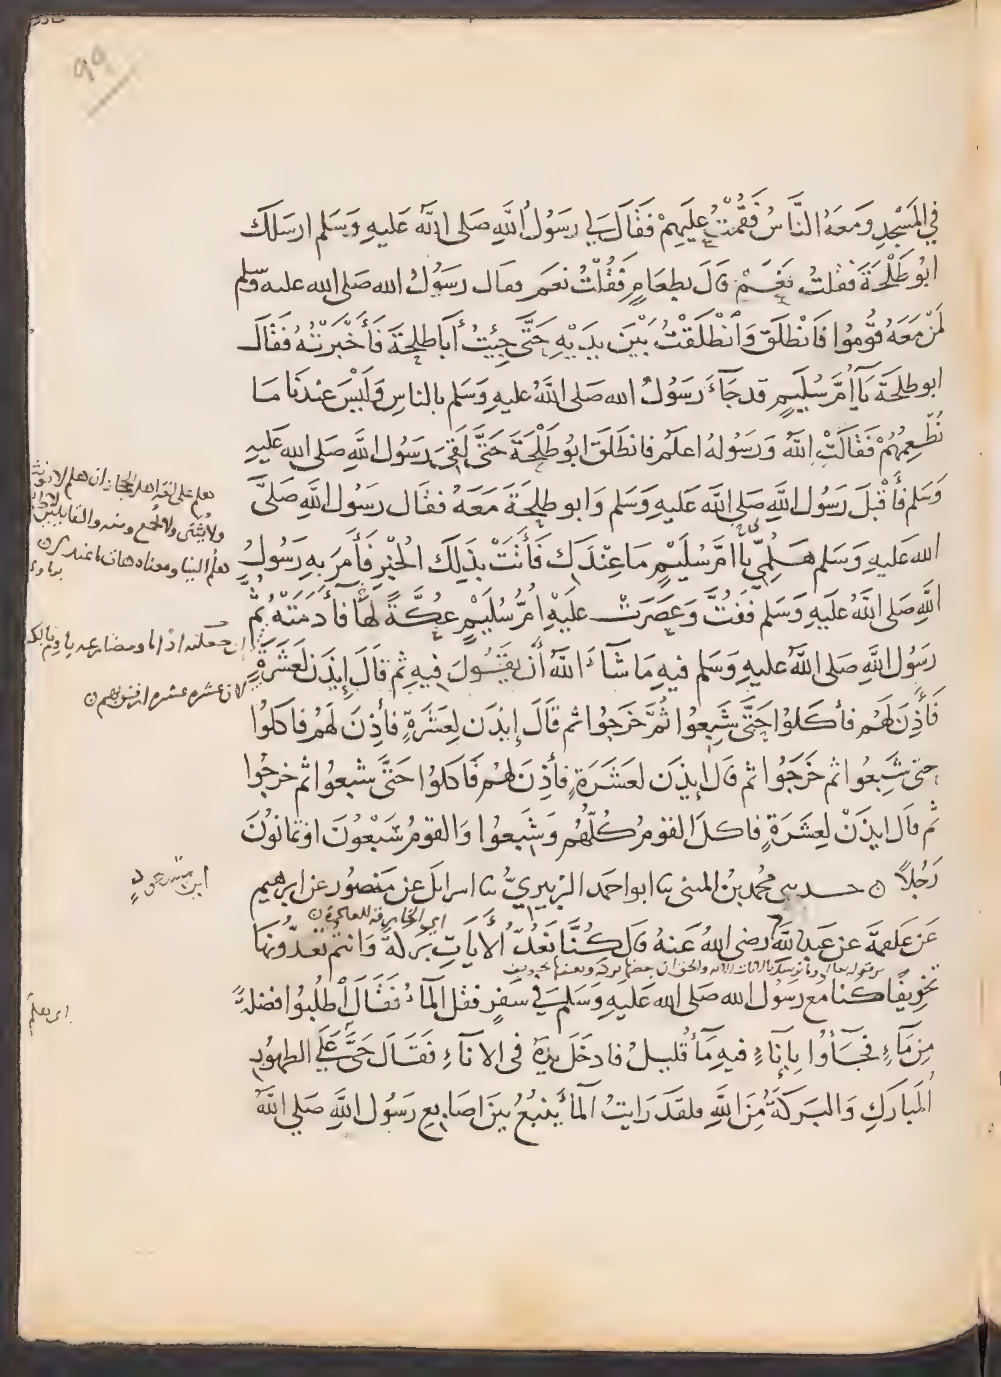 ٩٩
في المَسْجِدِ وَمَعَهُ النَّاسُ فَقُمْتُ عَلَيهِمْ فَقَالَ لي رَسُولُ اللَّهِ صَلى اللَّهُ عَلَيهِ وَسَلم ارسَلَكَ
ابُو طَلْحَةَ فَقلتُ نَعَمْ قَالَ بطعَامٍ فَقُلْتُ نَعَم فقال رَسُوْلُ الله صَلى الله عليه وسلم
لمَنْ مَعَهُ قُومُوا فَانْطلَقَ وَانْطَلَقْتُ بَيْنَ يدَيْهِ حَتَّى جِئْتُ أَبَا طلحةَ فَأَخْبَرْتُهُ فَقَالَ
ابو طلحَةَ يَا أُمَّ سُلَيمٍ قد جَاءَ رَسُولُ الله صَلى اللَّهُ عليهِ وَسَلم بالناسِ وَلَيْسَ عِنْدَنَا مَا
نُطْعِمُهُمْ فَقَالَتْ اللَّهُ وَرَسُولهُ اعلَم فانطَلَقَ ابُو طَلْحَةَ حَتَّى لَقىَ رَسُول اللَّهِ صَلى الله عَليهِ
وَسَلم فَأَقْبَلَ رَسُول اللَّهِ صَلى اللَّه عَليهِ وَسَلم وَابو طلحَةَ مَعَهُ فقَال رَسُول اللَّهِ صَلىَّ
الله عَليهِ وَسَلم هَلُمِّي يا امَّ سُلَيْمٍ مَا عِنْدَكِ فَأَتَتْ بذَلِكَ الخُبْزِ فَأَمَرَ بهِ رَسُولُ
اللَّهِ صَلى اللَّهُ عَليهِ وَسَلم فَفُتَّ وَعَصَرَتْ عَليْهِ امُّ سُلَيْمٍ عُكَّةً لهَا فَأَدَمَتْهُ ثُمَّ
رَسُول اللَّهِ صَلى اللَّهُ عليهِ وَسَلم فيهِ مَا شَاءَ اللَّهُ أَنْ يَقُولَ فيهِ ثم قَالَ إيذَن لعَشَرَةٍ
فَأَذِنَ لَهُم فأكَلوُا حَتَّى شَبِعوُا ثُمَّ خَرَجوُا ثم قَالَ إيذَن لِعَشَرَةٍ فأذِنَ لهُم فأكلُوا
حتى شَبِعُوا ثم خَرَجُوا ثم قَال إيذَن لعَشَرَةٍ فأذِنَ لهُم فَأكلُوا حَتَّى شبعُوا ثم خرجُوا
ثم قال ايذَنْ لِعَشَرَةٍ فاكلَ القوْمُ كُلُّهُم وَشَبِعوا وَالقومُ سَبْعُونَ اوْ ثمانُونَ
رَجُلاً ن حدثني محمد بنُ المثنى نا ابو احمَد الزبيريُّ نا اسرايلَ عن مَنصُور عن ابرهيم
ابن مسعود
عَن عَلقمَةَ عن عَبد اللَّهِ رضى اللهُ عَنهُ قال كُنَّا نَعُدُّ الأيَاتِ بَرَكَةً وَانتُم تَعُدُّونَهَا
تخْوِيفًا كنا مَع رَسُول الله صَلى الله عَليهِ وَسَلمَ في سَفرٍ فقَل المَاءُ فَقَالَ اطلُبُوا فضلَةً
مِن مَاءٍ فجَاؤُا بِإنَاءٍ فيهِ مَاءٌ قليلٌ فادخَلَ يدَهُ فى الانَاءِ فَقَالَ حَيَّ عَلَى الطهُورِ
المُبَارَكِ وَالبَركَةُ مِنَ اللَّهِ فلقَد رَايتُ المَا يَنبُعُ مِن بين اصَابعِ رَسُول اللَّهِ صَلي اللَّهُ